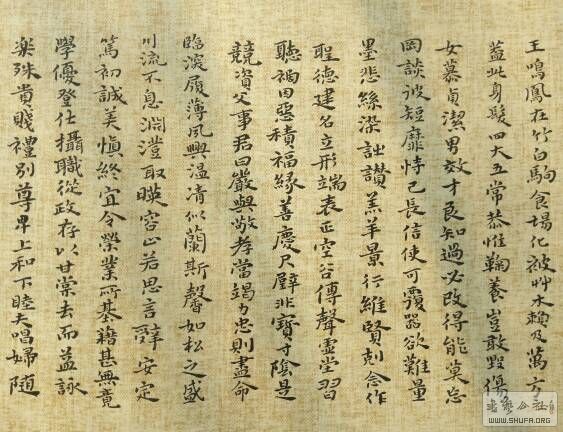 王鳴鳳在竹白駒食場化被艸木賴及萬方
蓋此身髮四大五常恭惟鞠養豈敢毀傷
女慕貞潔男效才良知過必改得能莫忘
罔談彼短靡恃己長信使可覆器欲難量
墨悲絲染詩讚羔羊景行維賢剋念作
聖德建名立形端表正空谷傳聲虛堂習
聽禍因惡積福緣善慶尺璧非寶寸陰是
競資父事君曰嚴與敬孝當竭力忠則盡命
臨深履薄夙興溫凊似蘭斯馨如松之盛
川流不息淵澄取暎容止若思言辭安定
篤初誠美慎終宜令榮業所基籍甚無竟
學優登仕攝職從政存以甘棠去而益詠
樂殊貴賤禮別尊卑上和下睦夫唱婦隨
WWW.SHUFA.ORG